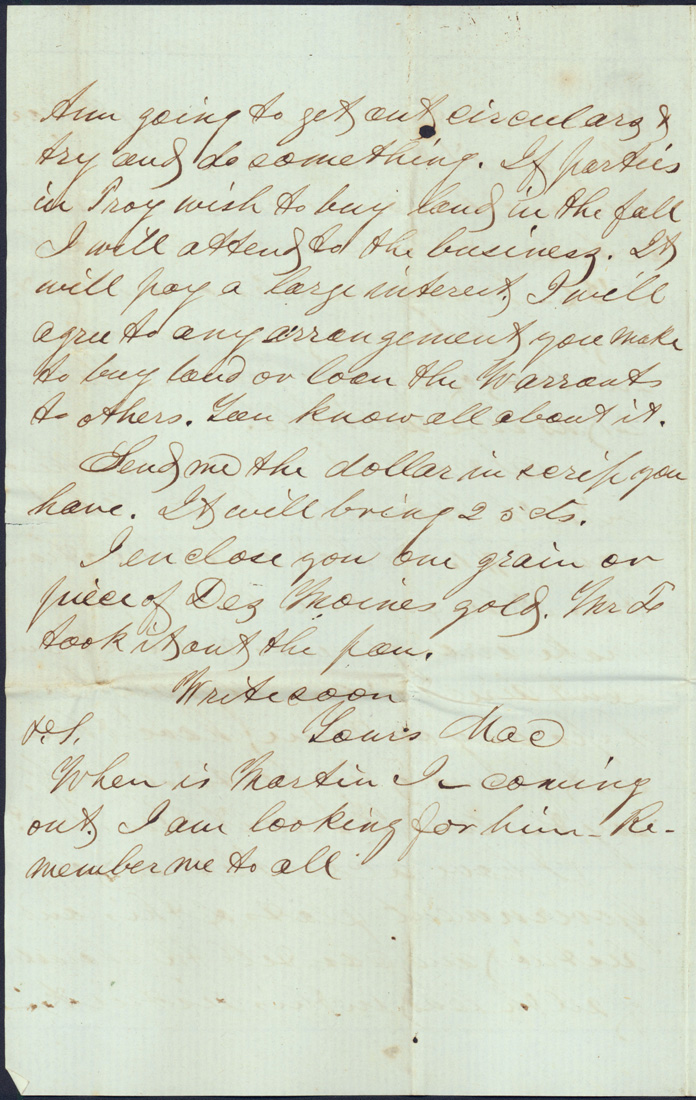 Am going to get out circulars &
try and do something. If parties
in Troy wish to buy land in the fall
I will attend to the business. It
will pay a large interest, I will
agree to any arrangement you make
to buy land or loan the Warrants
to others. You know all about it.
Send me the dollar in scrip you
have. It will bring 25 cts.
I enclose you one grain or
piece of Des Moines gold. Mr
took it out the pan.
Write soon
Yours Mac
P.S.
When is Martin I— coming
out, I am looking for him— Re-
member me to all